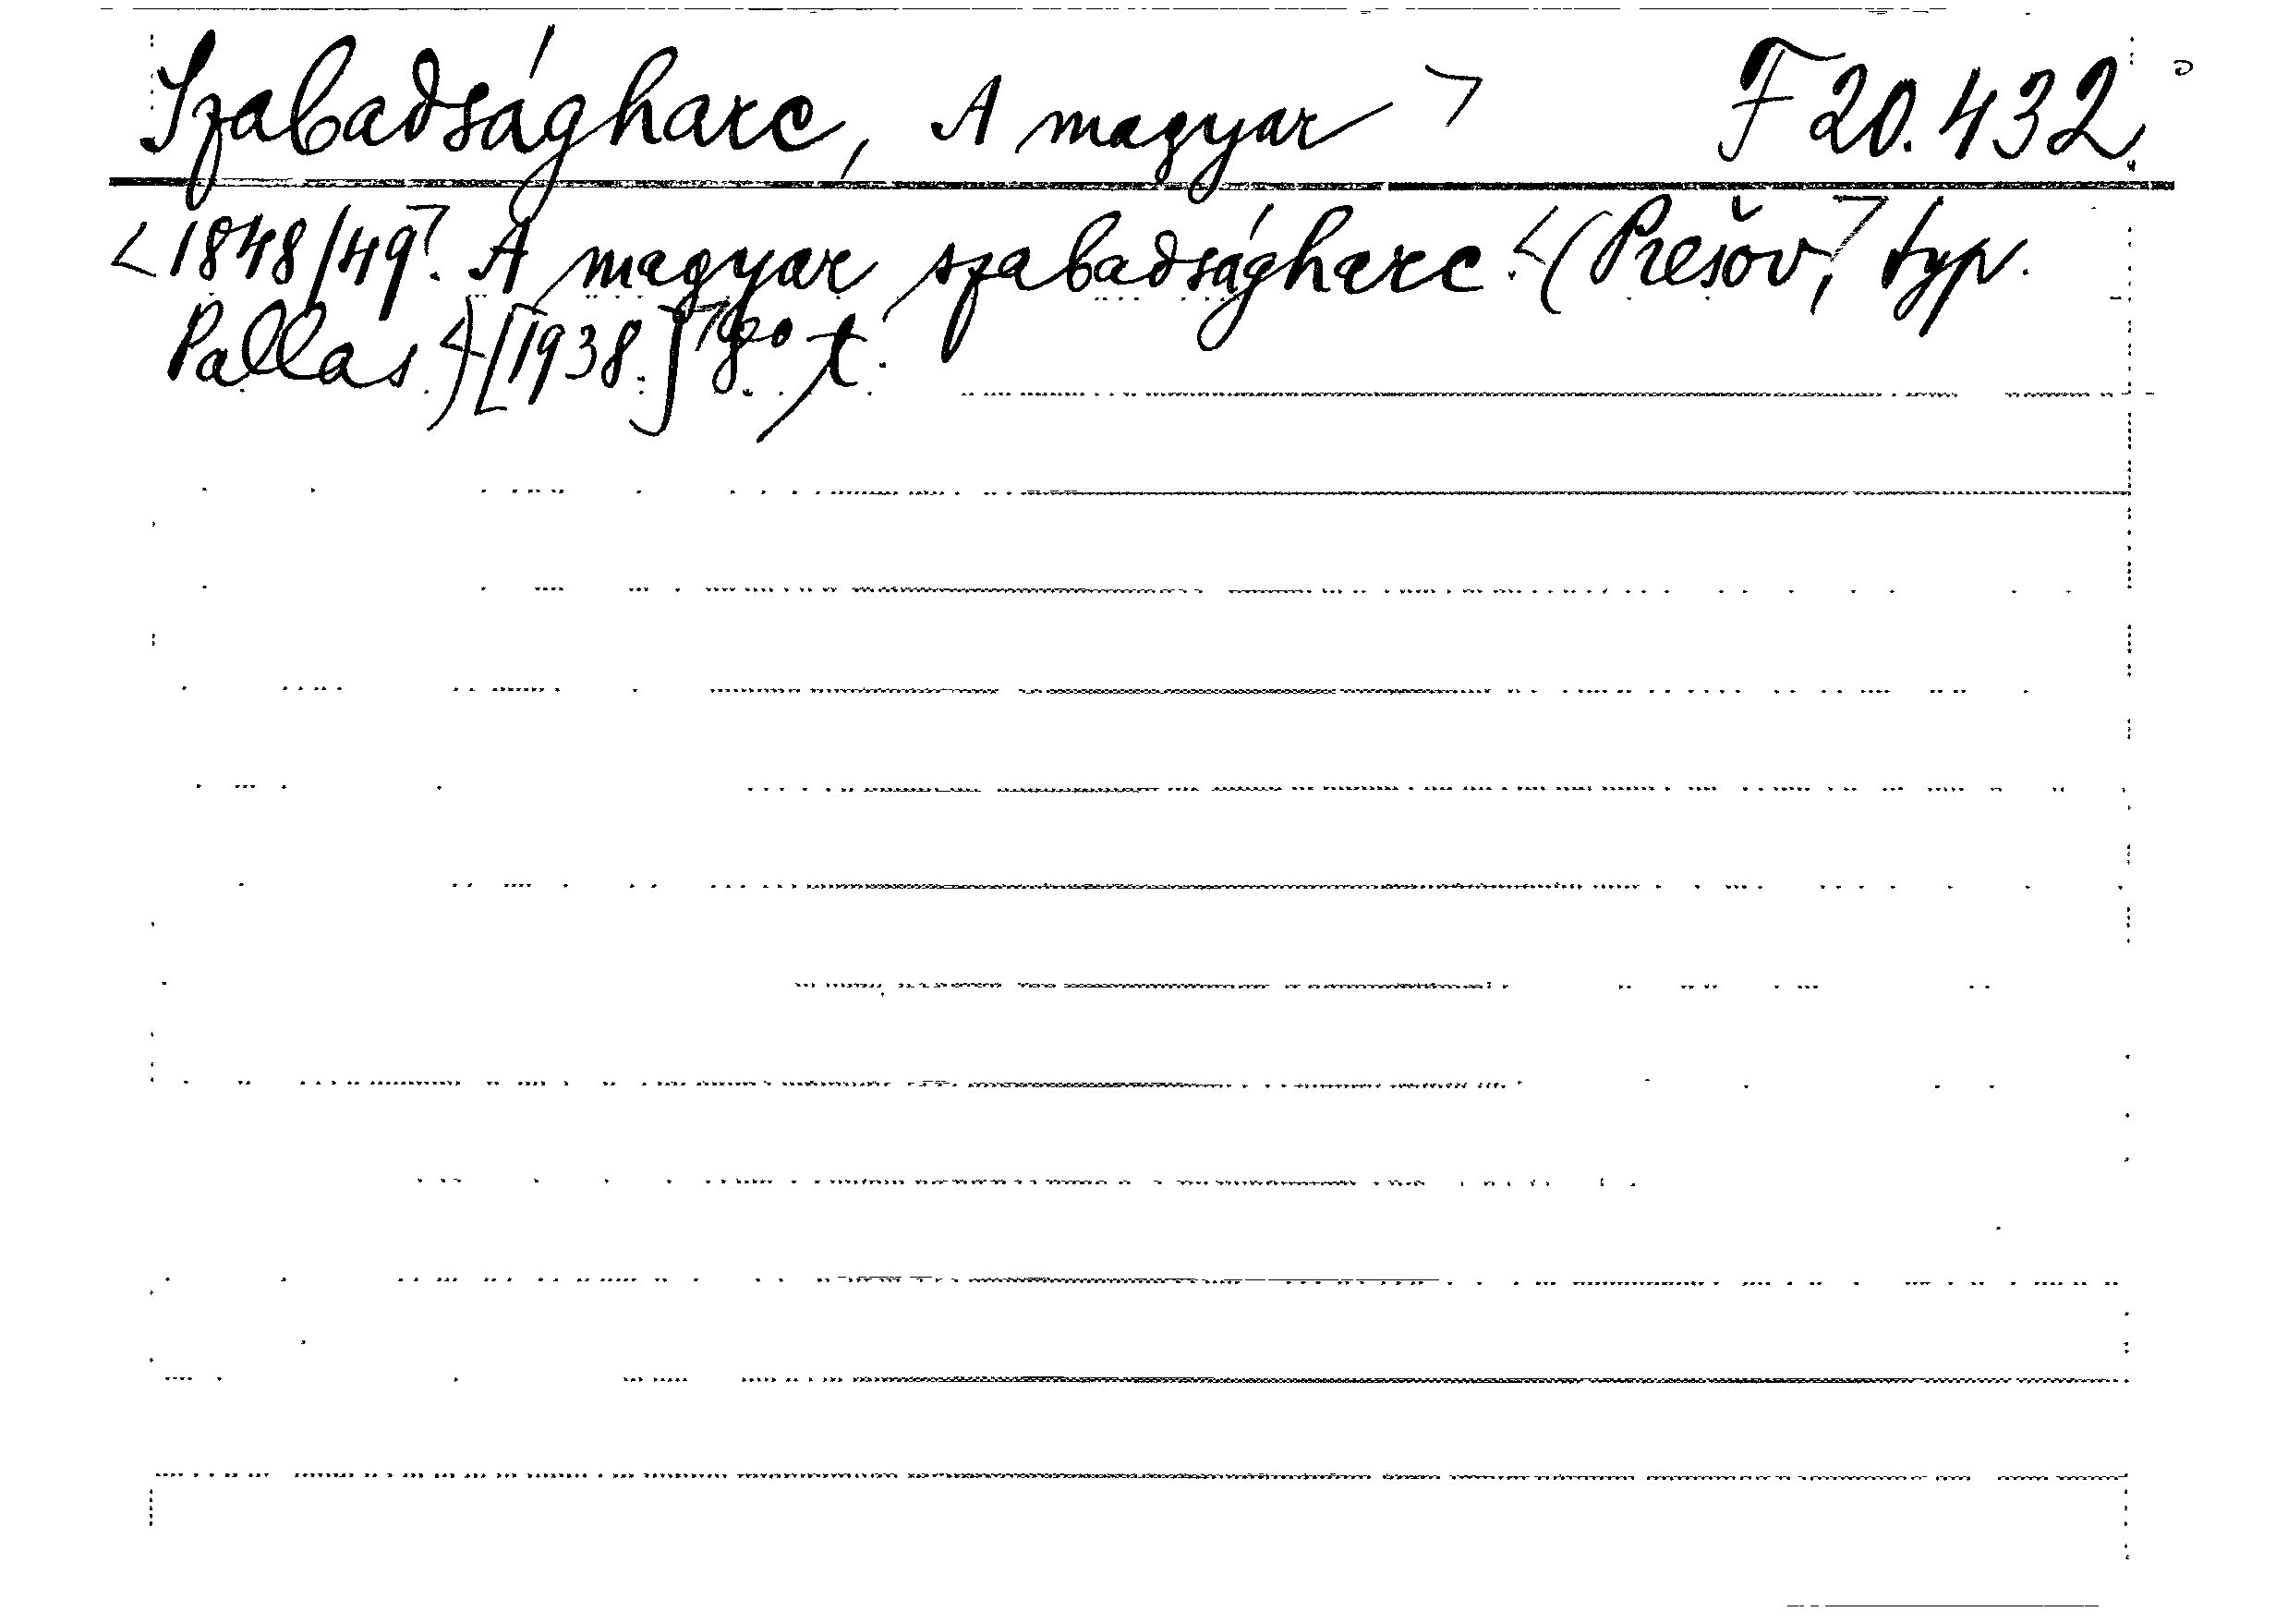 Szabadságharc, A magyar ¬ F 20.432
<1848/49¬. A magyar szabadságharc. <(Prešov,¬ typ.
Pallas.) <[1938.]¬ 8° t.